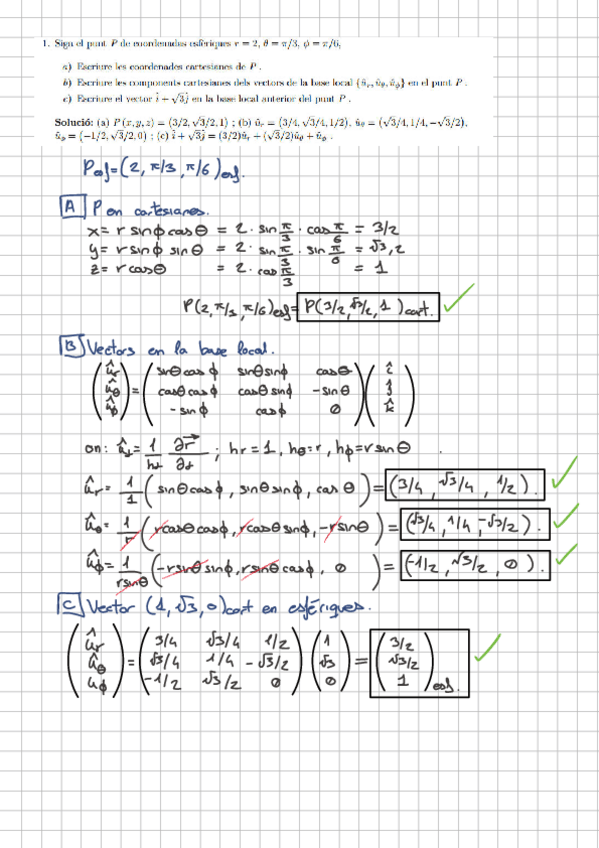 1. Sigui el punt P de coordenades esfèriques r = 2, θ = π/3, ϕ = π/6,
a) Escriure les coordenades cartesianes de P .
b) Escriure les components cartesianes dels vectors de la base local {û_r, û_θ, û_ϕ} en el punt P .
c) Escriure el vector î + √3ĵ en la base local anterior del punt P .
Solució: (a) P(x, y, z) = (3/2, √3/2, 1) ; (b) û_r = (3/4, √3/4, 1/2), û_θ = (√3/4, 1/4, −√3/2),
û_ϕ = (−1/2, √3/2, 0) ; (c) î + √3ĵ = (3/2)û_r + (√3/2)û_θ + û_ϕ .
P esf = (2, π/3, π/6) esf.
A P en cartesianes.
x = r sinϕ cosθ = 2 · sin π/3 · cos π/6 = 3/2
y = r sinϕ sinθ = 2 · sin π/3 · sin π/6 = √3/2
z = r cosθ = 2 · cos π/3 = 1
P(2, π/3, π/6)esf = P(3/2, √3/2, 1)cart. ✓
B Vectors en la base local.
(û_r û_θ û_ϕ) = (sinθcosϕ sinθsinϕ cosθ
cosθcosϕ cosθsinϕ -sinθ
-sinϕ cosϕ 0) (î ĵ k̂)
on: = 1/h ∂r⃗/∂ ; hr = 1, hθ = r, hϕ = r sinθ .
û_r = 1/1 (sinθcosϕ, sinθsinϕ, cosθ) = (3/4, √3/4, 1/2). ✓
û_θ = 1/r (rcosθcosϕ, rcosθsinϕ, -rsinθ) = (√3/4, 1/4, -√3/2). ✓
û_ϕ = 1/rsinθ (-rsinθsinϕ, rsinθcosϕ, 0) = (-1/2, √3/2, 0). ✓
C Vector (1, √3, 0)cart en esfèriques.
(û_r û_θ û_ϕ) = (3/4 √3/4 1/2
√3/4 1/4 -√3/2
-1/2 √3/2 0) (1 √3 0) = (3/2 √3/2 1) esf. ✓